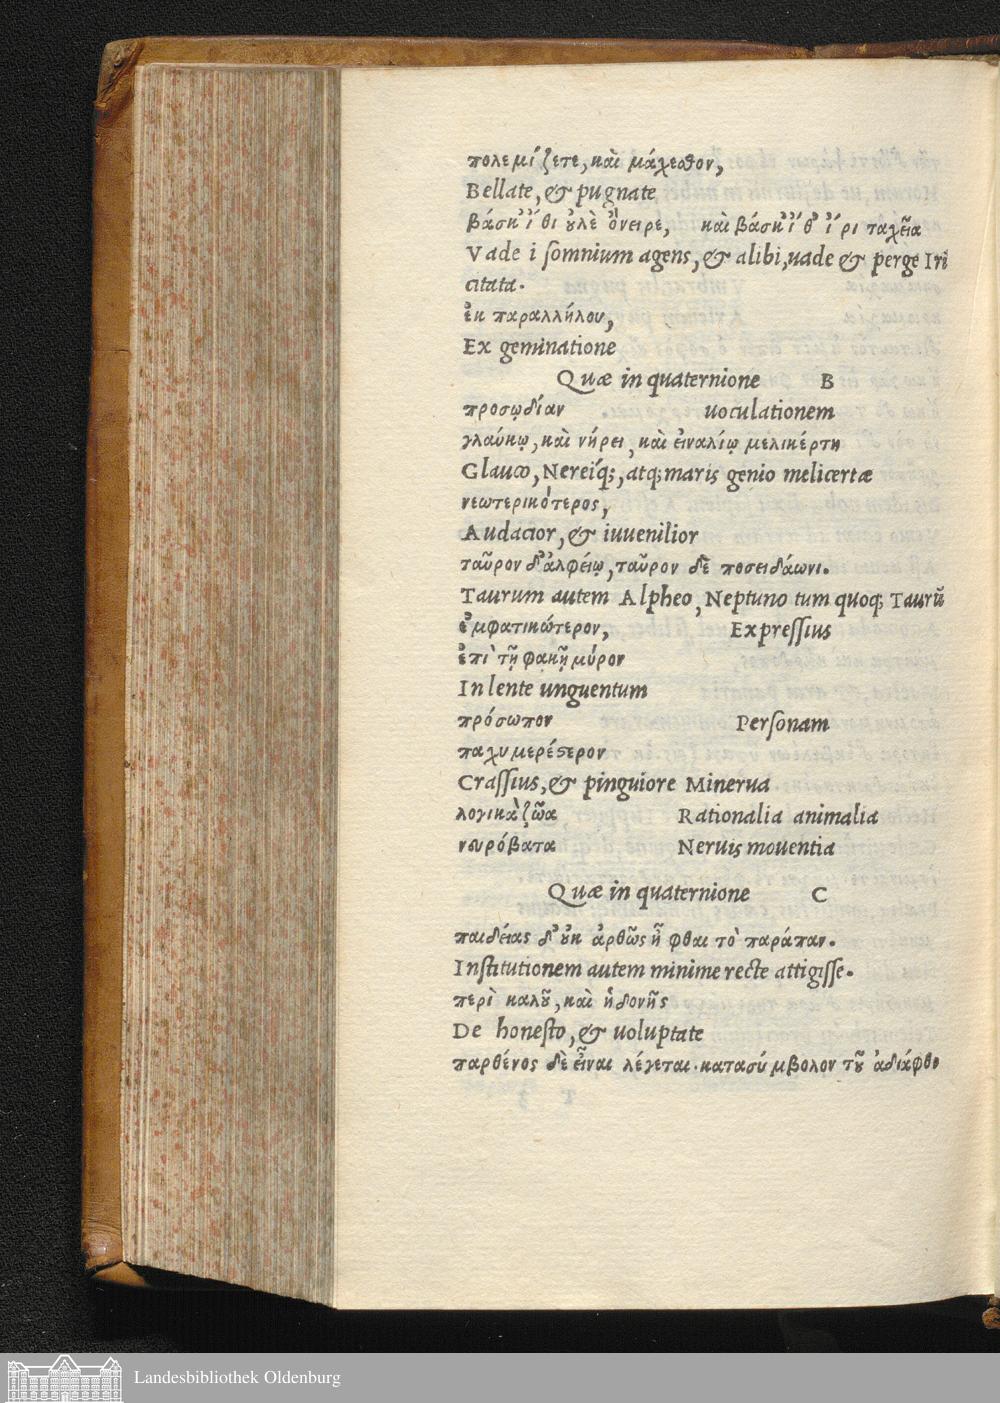 πολεμίζετε, καὶ μάχεσθον,
Bellate, & pugnate
βάσκ' ἴθι οὖλε ὄνειρε, καὶ βάσκ' ἴθ' ἴρι ταχεῖα
Vade i somnium agens, & alibi, uade & perge Iri
citata.
ἐκ παραλλήλου,
Ex geminatione
Quæ in quaternione B
προσῳδίαν uoculationem
γλαύκῳ, καὶ νήρει, καὶ εἰναλίῳ μελικέρτῃ
Glauco, Nereíq;, atq; maris genio melicertæ
νεωτερικότερος,
Audacior, & iuuenilior
ταῦρον δ'ἀλφειῷ, ταῦρον δὲ ποσειδάωνι.
Taurum autem Alpheo, Neptuno tum quoq; Taurũ
ἐμφατικώτερον, Expressius
ἐπὶ τῇ φακῇ μύρον
In lente unguentum
πρόσωπον Personam
παχυμερέστερον
Crassius, & pinguiore Minerua
λογικὰ ζῶα Rationalia animalia
νευρόβατα Neruis mouentia
Quæ in quaternione C
παιδείας δ' οὐκ ὀρθῶς ἧφθαι τὸ παράπαν.
Institutionem autem minime recte attigisse.
περὶ καλοῦ, καὶ ἡδονῆς
De honesto, & uoluptate
παρθένος δὲ εἶναι λέγεται. κατασύμβολον τοῦ ἀδιάφθο
Landesbibliothek Oldenburg